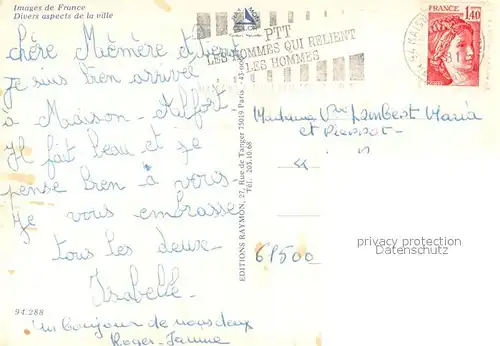 Images de France
Divers aspects de la ville
chère Mémère et Pierrot
je suis bien arrivée
à Maison-Alfort.
Il fait beau et je
pense bien à vous.
Je vous embrasse
tous les deux.
Isabelle.
un bonjour de nous deux
Roger-Jeanne
94.288
EDITIONS RAYMON, 27, Rue de Tanger 75019 Paris
Tél. 205.10.68
PTT
LES HOMMES QUI RELIENT
LES HOMMES
FRANCE
1,40
Madame Vve Lambert Maria
et Pierrot
61500
privacy protection
Datenschutz